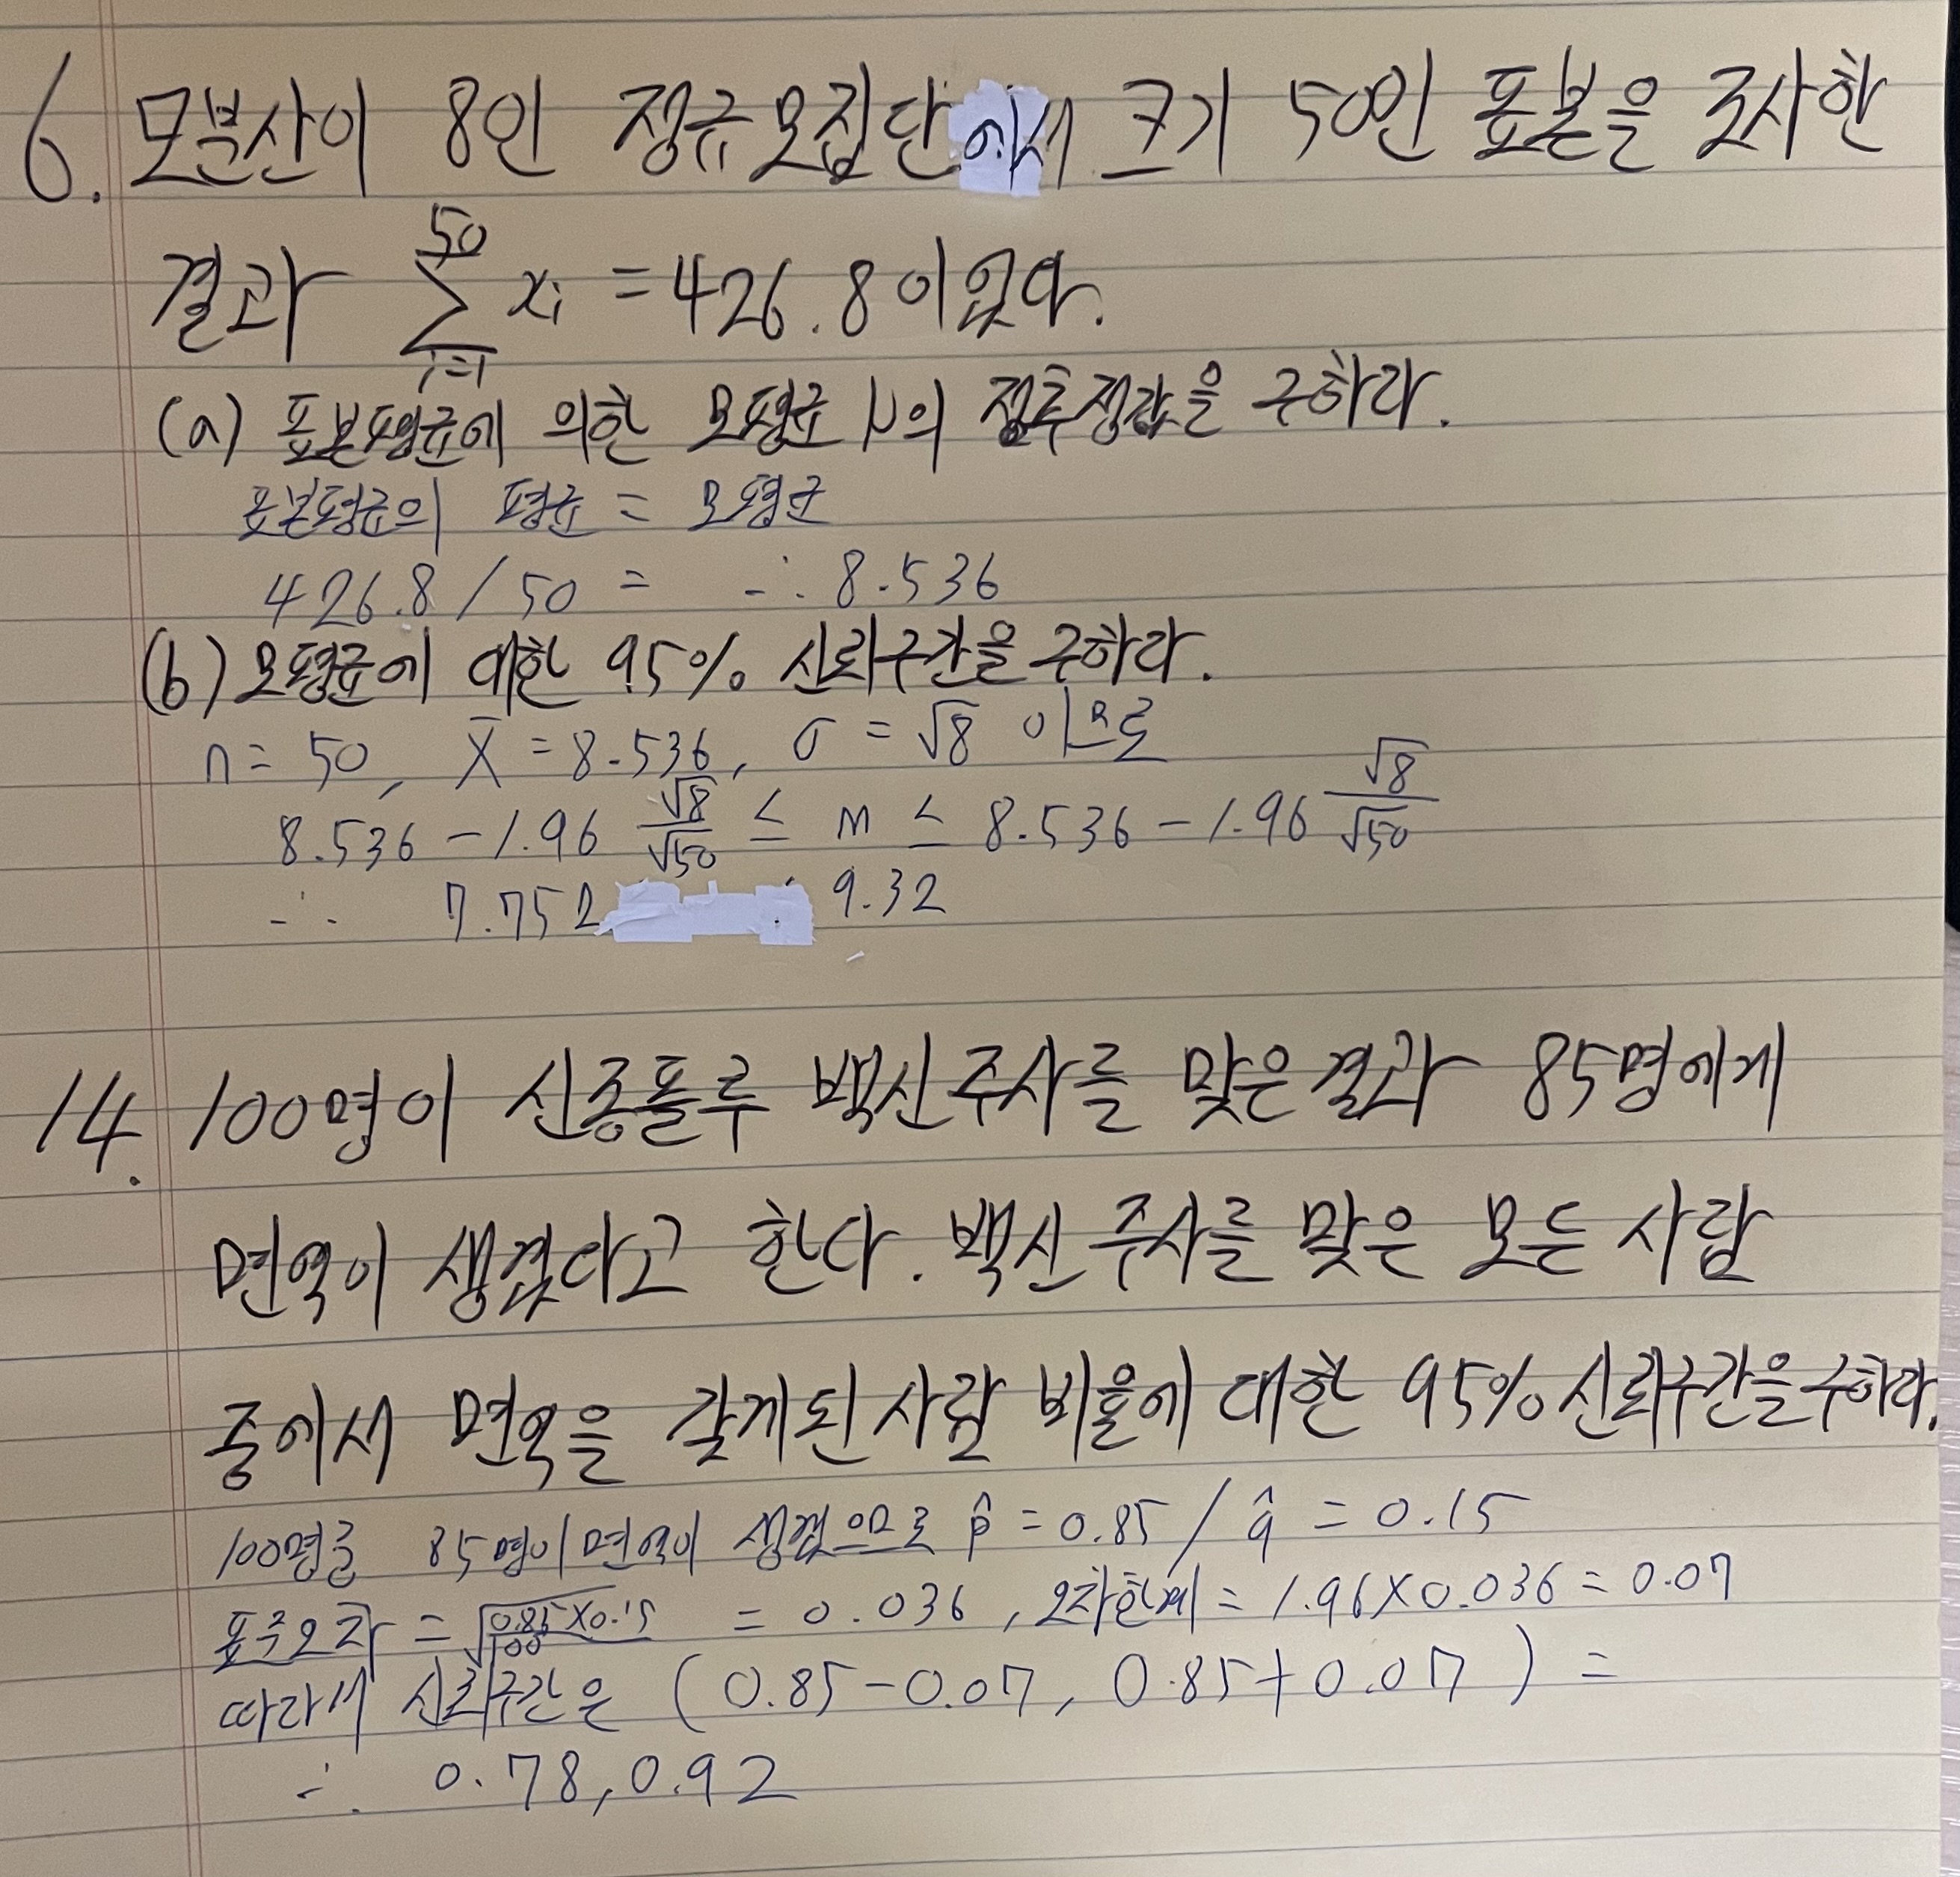 6. 모분산이 8인 정규모집단에서 크기 50인 표본을 조사한
결과 50∑i=1 xi = 426.8이었다.
(a) 표본평균에 의한 모평균 μ의 점추정값을 구하라.
표본평균의 평균 = 모평균
426.8 / 50 = ∴ 8.536
(b) 모평균에 대한 95% 신뢰구간을 구하라.
n = 50, X̄ = 8.536, σ = √8 이므로
8.536 - 1.96 √8/√50 ≤ m ≤ 8.536 - 1.96 √8/√50
∴ 7.752 9.32
14. 100명이 신종플루 백신주사를 맞은 결과 85명에게
면역이 생겼다고 한다. 백신 주사를 맞은 모든 사람
중에서 면역을 갖게된 사람 비율에 대한 95% 신뢰구간을 구하라.
100명중 85명이 면역이 생겼으므로 p̂ = 0.85 / q̂ = 0.15
표준오차 = √(0.85×0.15/100) = 0.036, 오차한계 = 1.96×0.036 = 0.07
따라서 신뢰구간은 (0.85-0.07, 0.85+0.07) =
∴ 0.78, 0.92